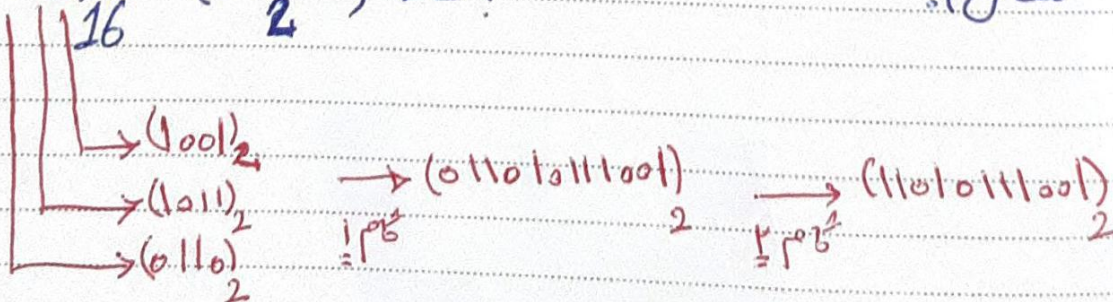 16 2
(1001)₂
(1011)₂ → (011010111001)₂ → (11010111001)₂
(0110)₂ گام ۱ گام ۲